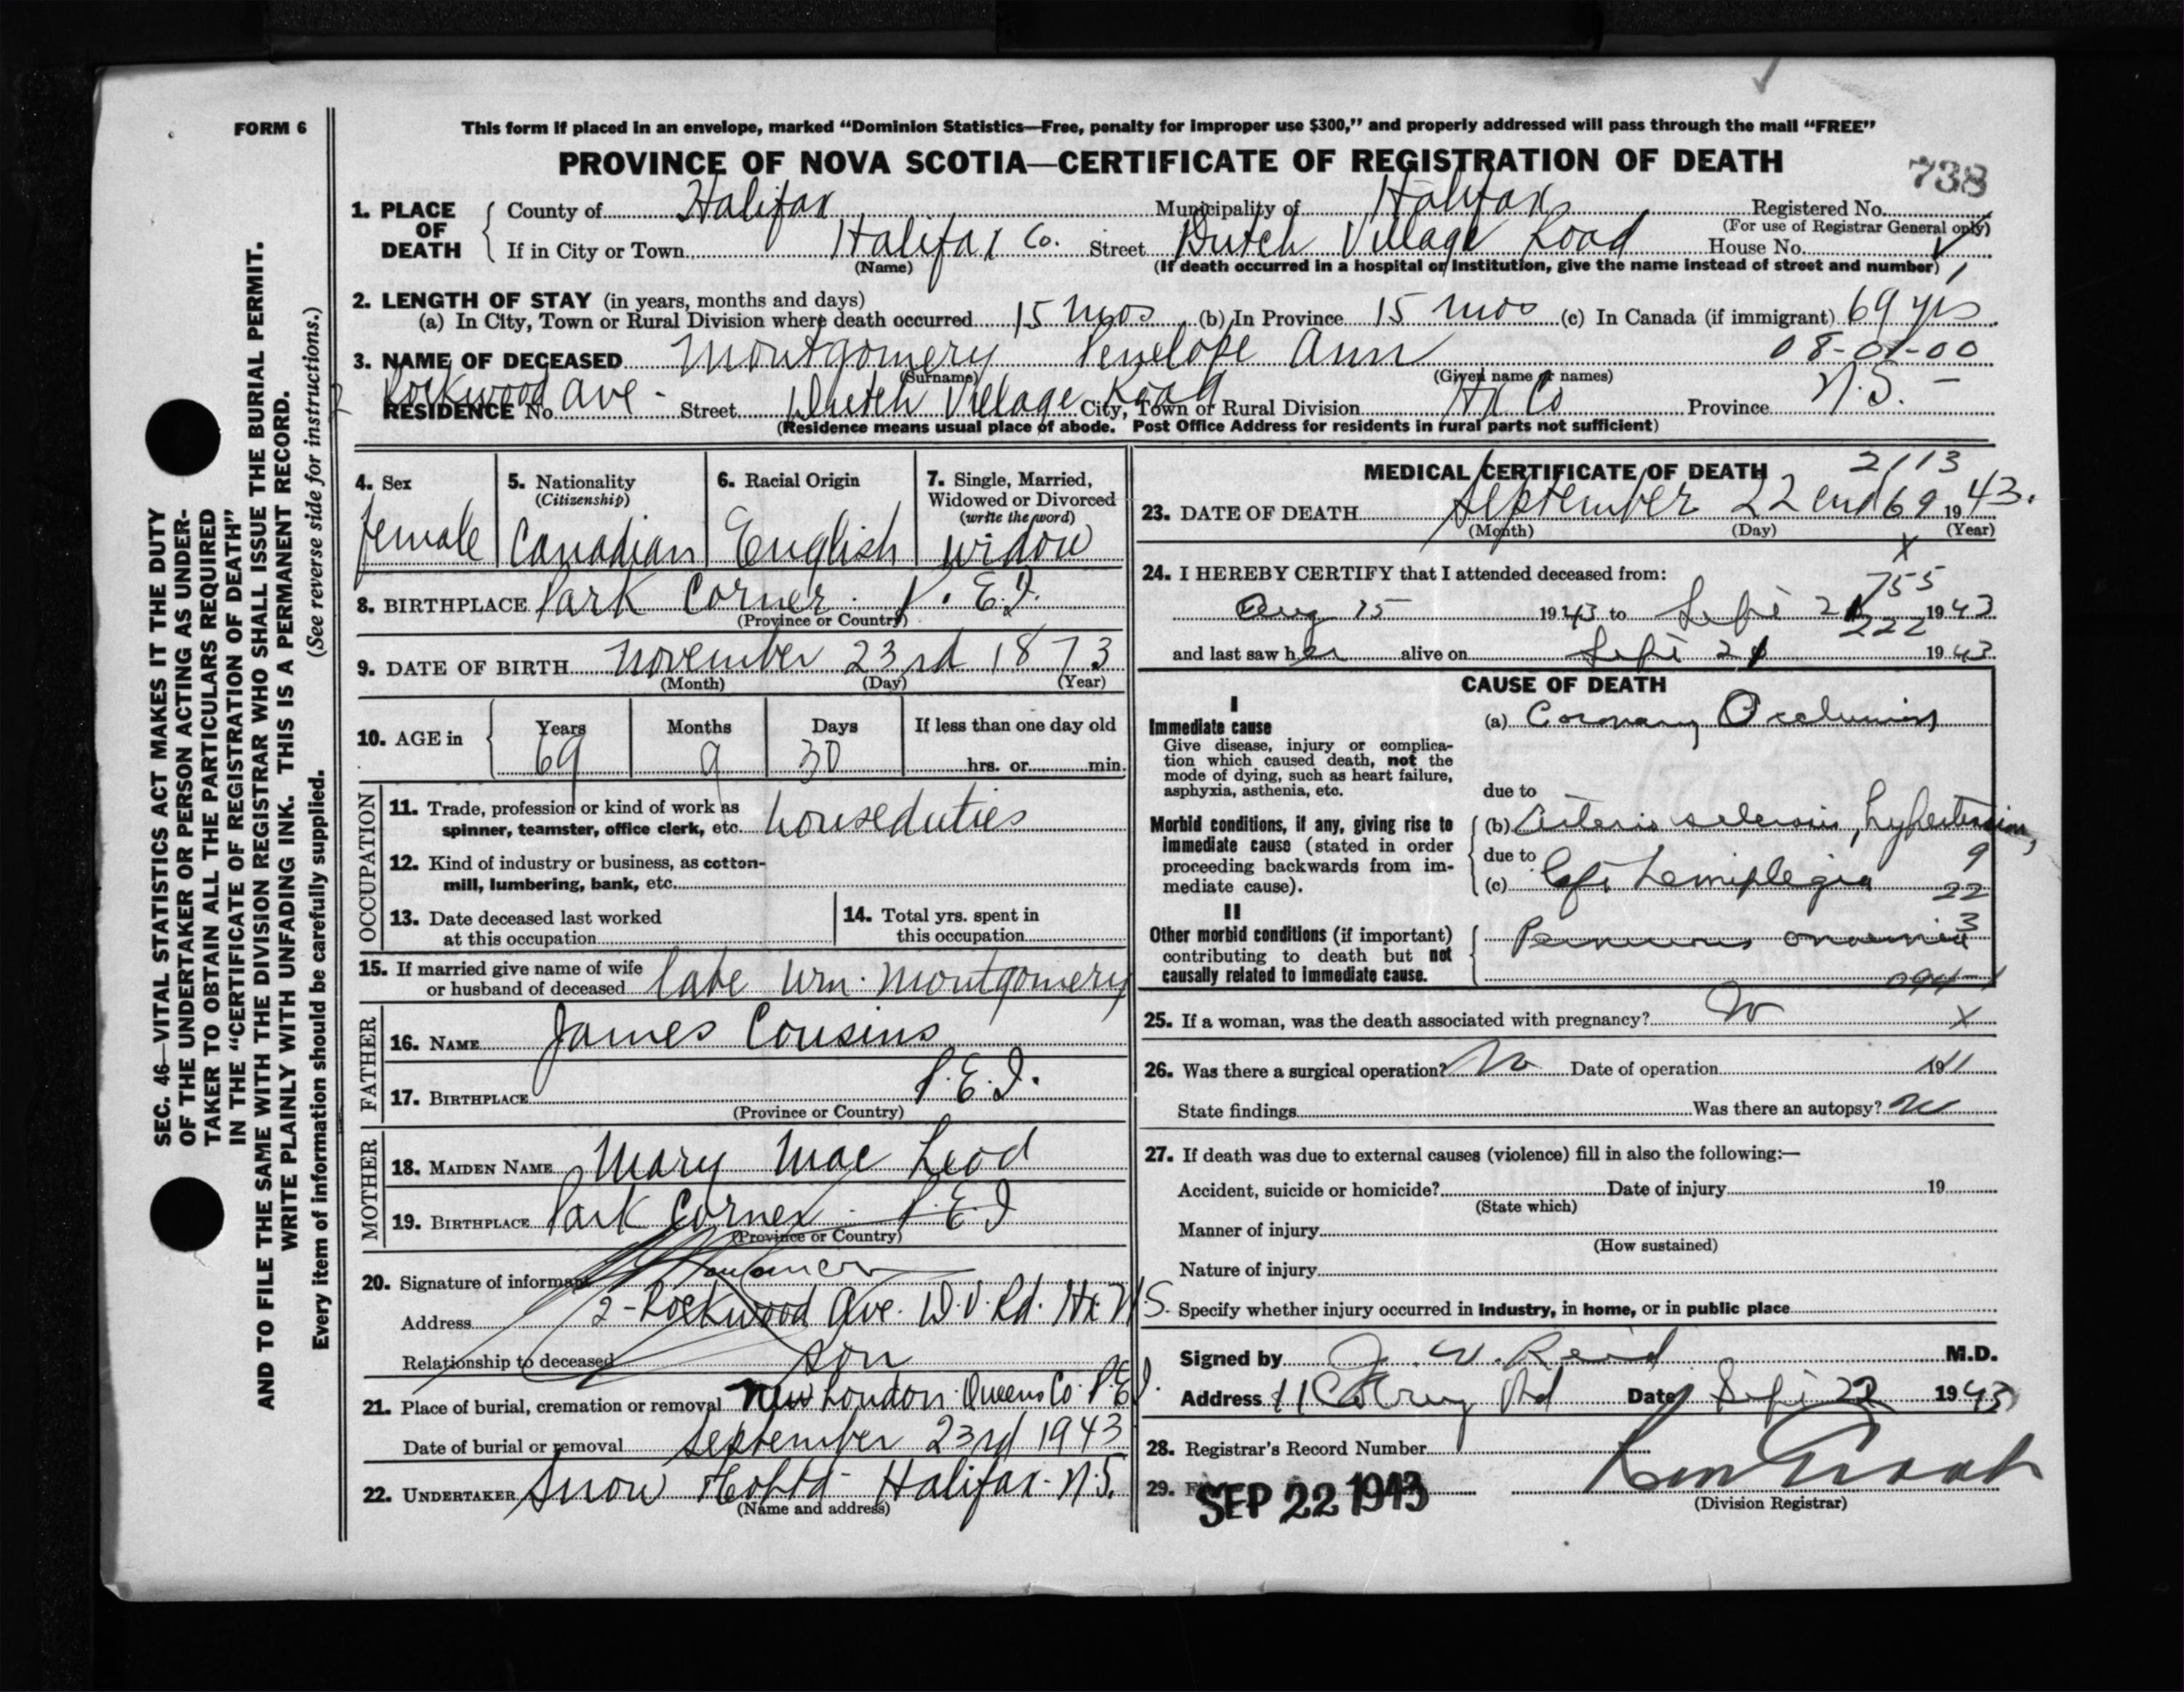 FORM 6
This form if placed in an envelope, marked "Dominion Statistics—Free, penalty for improper use $300," and properly addressed will pass through the mail "FREE"
PROVINCE OF NOVA SCOTIA—CERTIFICATE OF REGISTRATION OF DEATH
738
1. PLACE OF DEATH
County of Halifax Municipality of Halifax Registered No.
(For use of Registrar General only)
If in City or Town Halifax Co. Street Dutch Village Road House No.
(Name) (If death occurred in a hospital or institution, give the name instead of street and number)
2. LENGTH OF STAY (in years, months and days)
(a) In City, Town or Rural Division where death occurred 15 mos (b) In Province 15 mos (c) In Canada (if immigrant) 69 yrs
3. NAME OF DECEASED Montgomery Penelope Ann 08-01-00
(Surname) (Given name or names)
2 Rockwood Ave -
RESIDENCE No. Street Dutch Village Road City, Town or Rural Division Hx Co Province N.S. -
(Residence means usual place of abode. Post Office Address for residents in rural parts not sufficient)
4. Sex
female
5. Nationality
(Citizenship)
Canadian
6. Racial Origin
English
7. Single, Married,
Widowed or Divorced
(write the word)
widow
8. BIRTHPLACE Park Corner. P.E.I.
(Province or Country)
9. DATE OF BIRTH November 23rd 1873
(Month) (Day) (Year)
10. AGE in Years Months Days If less than one day old
69 9 30 hrs. or min.
OCCUPATION
11. Trade, profession or kind of work as
spinner, teamster, office clerk, etc. houseduties
12. Kind of industry or business, as cotton-
mill, lumbering, bank, etc.
13. Date deceased last worked
at this occupation
14. Total yrs. spent in
this occupation
15. If married give name of wife
or husband of deceased late Wm. Montgomery
FATHER
16. NAME James Cousins
17. BIRTHPLACE P.E.I.
(Province or Country)
MOTHER
18. MAIDEN NAME Mary Mac Leod
19. BIRTHPLACE Park Corner - P.E.I
(Province or Country)
20. Signature of informant
Address 2 - Rockwood Ave. D.V. Rd. Hx. N.S.
Relationship to deceased son
21. Place of burial, cremation or removal New London. Queens Co. P.E.I.
Date of burial or removal September 23rd 1943
22. UNDERTAKER Snow & Co Ltd - Halifax - N.S.
(Name and address)
MEDICAL CERTIFICATE OF DEATH
2113
23. DATE OF DEATH September 22 end 69 1943.
(Month) (Day) (Year)
x
24. I HEREBY CERTIFY that I attended deceased from:
755
Aug 15 1943 to Sept 21 1943
222
and last saw her alive on Sept 21 1943
CAUSE OF DEATH
I
Immediate cause
Give disease, injury or complica-
tion which caused death, not the
mode of dying, such as heart failure,
asphyxia, asthenia, etc.
(a) Coronary Occlusion
due to
Morbid conditions, if any, giving rise to
immediate cause (stated in order
proceeding backwards from im-
mediate cause).
(b) Arterio sclerosis, hypertension,
due to
9
(c) Left hemiplegia
22
II
Other morbid conditions (if important)
contributing to death but not
causally related to immediate cause.
Pernicious anaemia
3
094-1
25. If a woman, was the death associated with pregnancy? No X
26. Was there a surgical operation? No Date of operation 19
State findings Was there an autopsy? No
27. If death was due to external causes (violence) fill in also the following:—
Accident, suicide or homicide? Date of injury 19
(State which)
Manner of injury
(How sustained)
Nature of injury
Specify whether injury occurred in industry, in home, or in public place
Signed by J. W. Reid M.D.
Address Rd Date Sept 22 1943
28. Registrar's Record Number
29.
SEP 22 1943
(Division Registrar)
SEC. 46—VITAL STATISTICS ACT MAKES IT THE DUTY
OF THE UNDERTAKER OR PERSON ACTING AS UNDER-
TAKER TO OBTAIN ALL THE PARTICULARS REQUIRED
IN THE "CERTIFICATE OF REGISTRATION OF DEATH"
AND TO FILE THE SAME WITH THE DIVISION REGISTRAR WHO SHALL ISSUE THE BURIAL PERMIT.
WRITE PLAINLY WITH UNFADING INK. THIS IS A PERMANENT RECORD.
Every item of information should be carefully supplied. (See reverse side for instructions.)